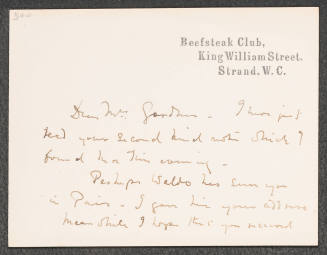 Beefsteak Club,
King William Street.
Strand. W. C.
Dear Mrs. Gardner. I have just
read your second kind note which I
found here this evening.
Perhaps Waldo has seen you
in Paris. I gave him your address
meanwhile I hope that you received